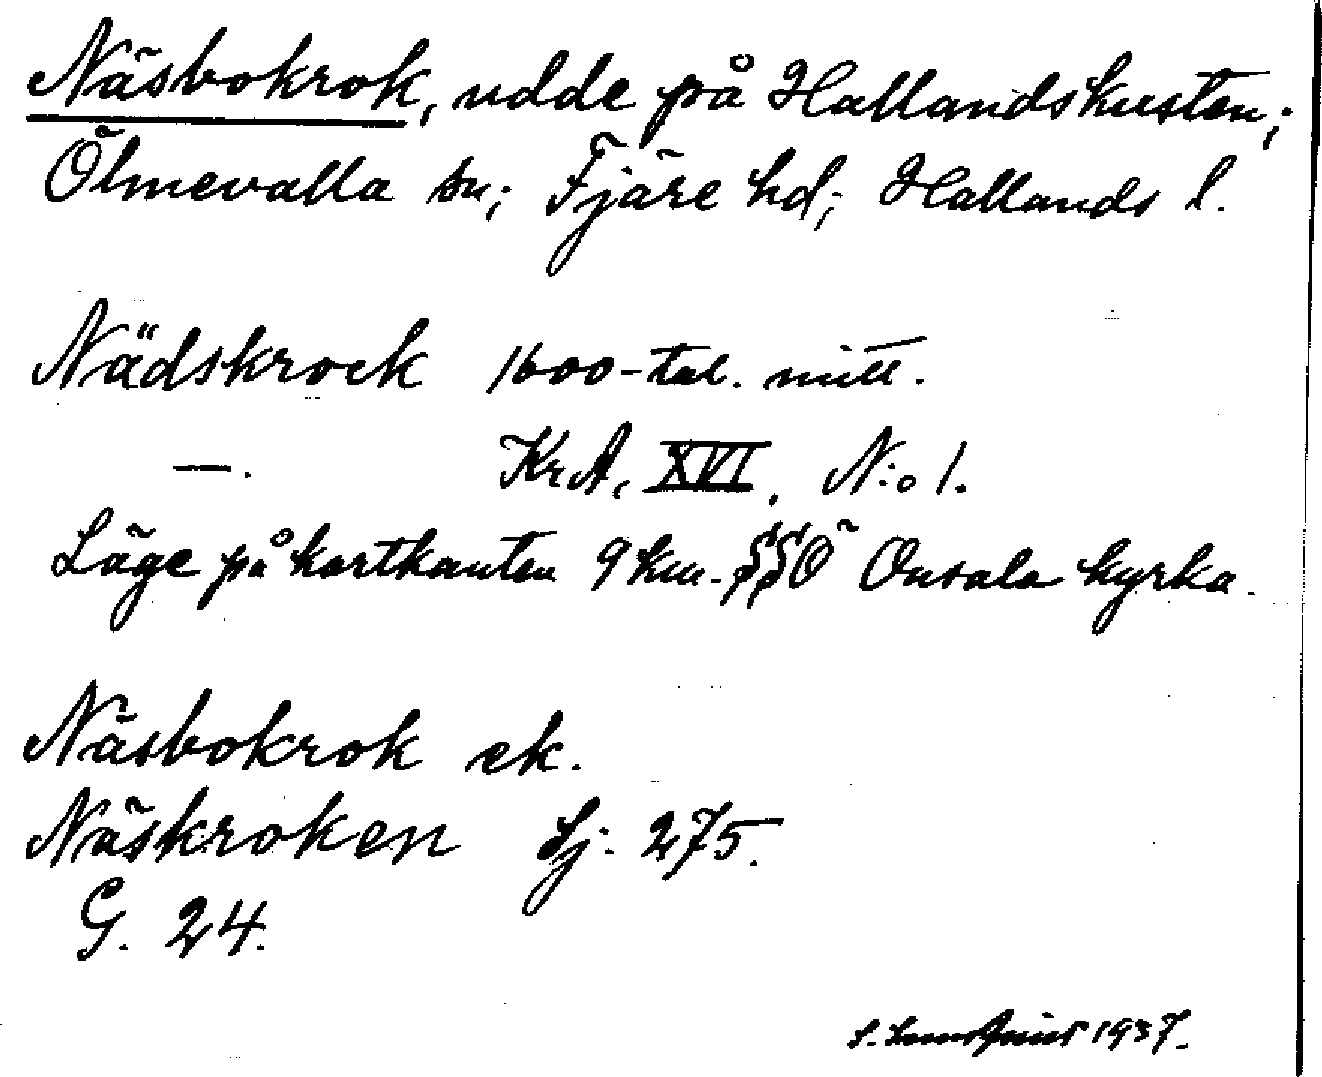 Näsbokrok, udde på Hallandskusten;
Ölmevalla sn; Fjäre hd; Hallands l.
Nädskrock 1600-tal. mitt.
—. KrA, XVI, N:o 1.
Läge på kartkanten 9 km. SSÖ Onsala kyrka.
Näsbokrok ek.
Näskroken Sj. 275.
G. 24.
S. Lundquist 1937.